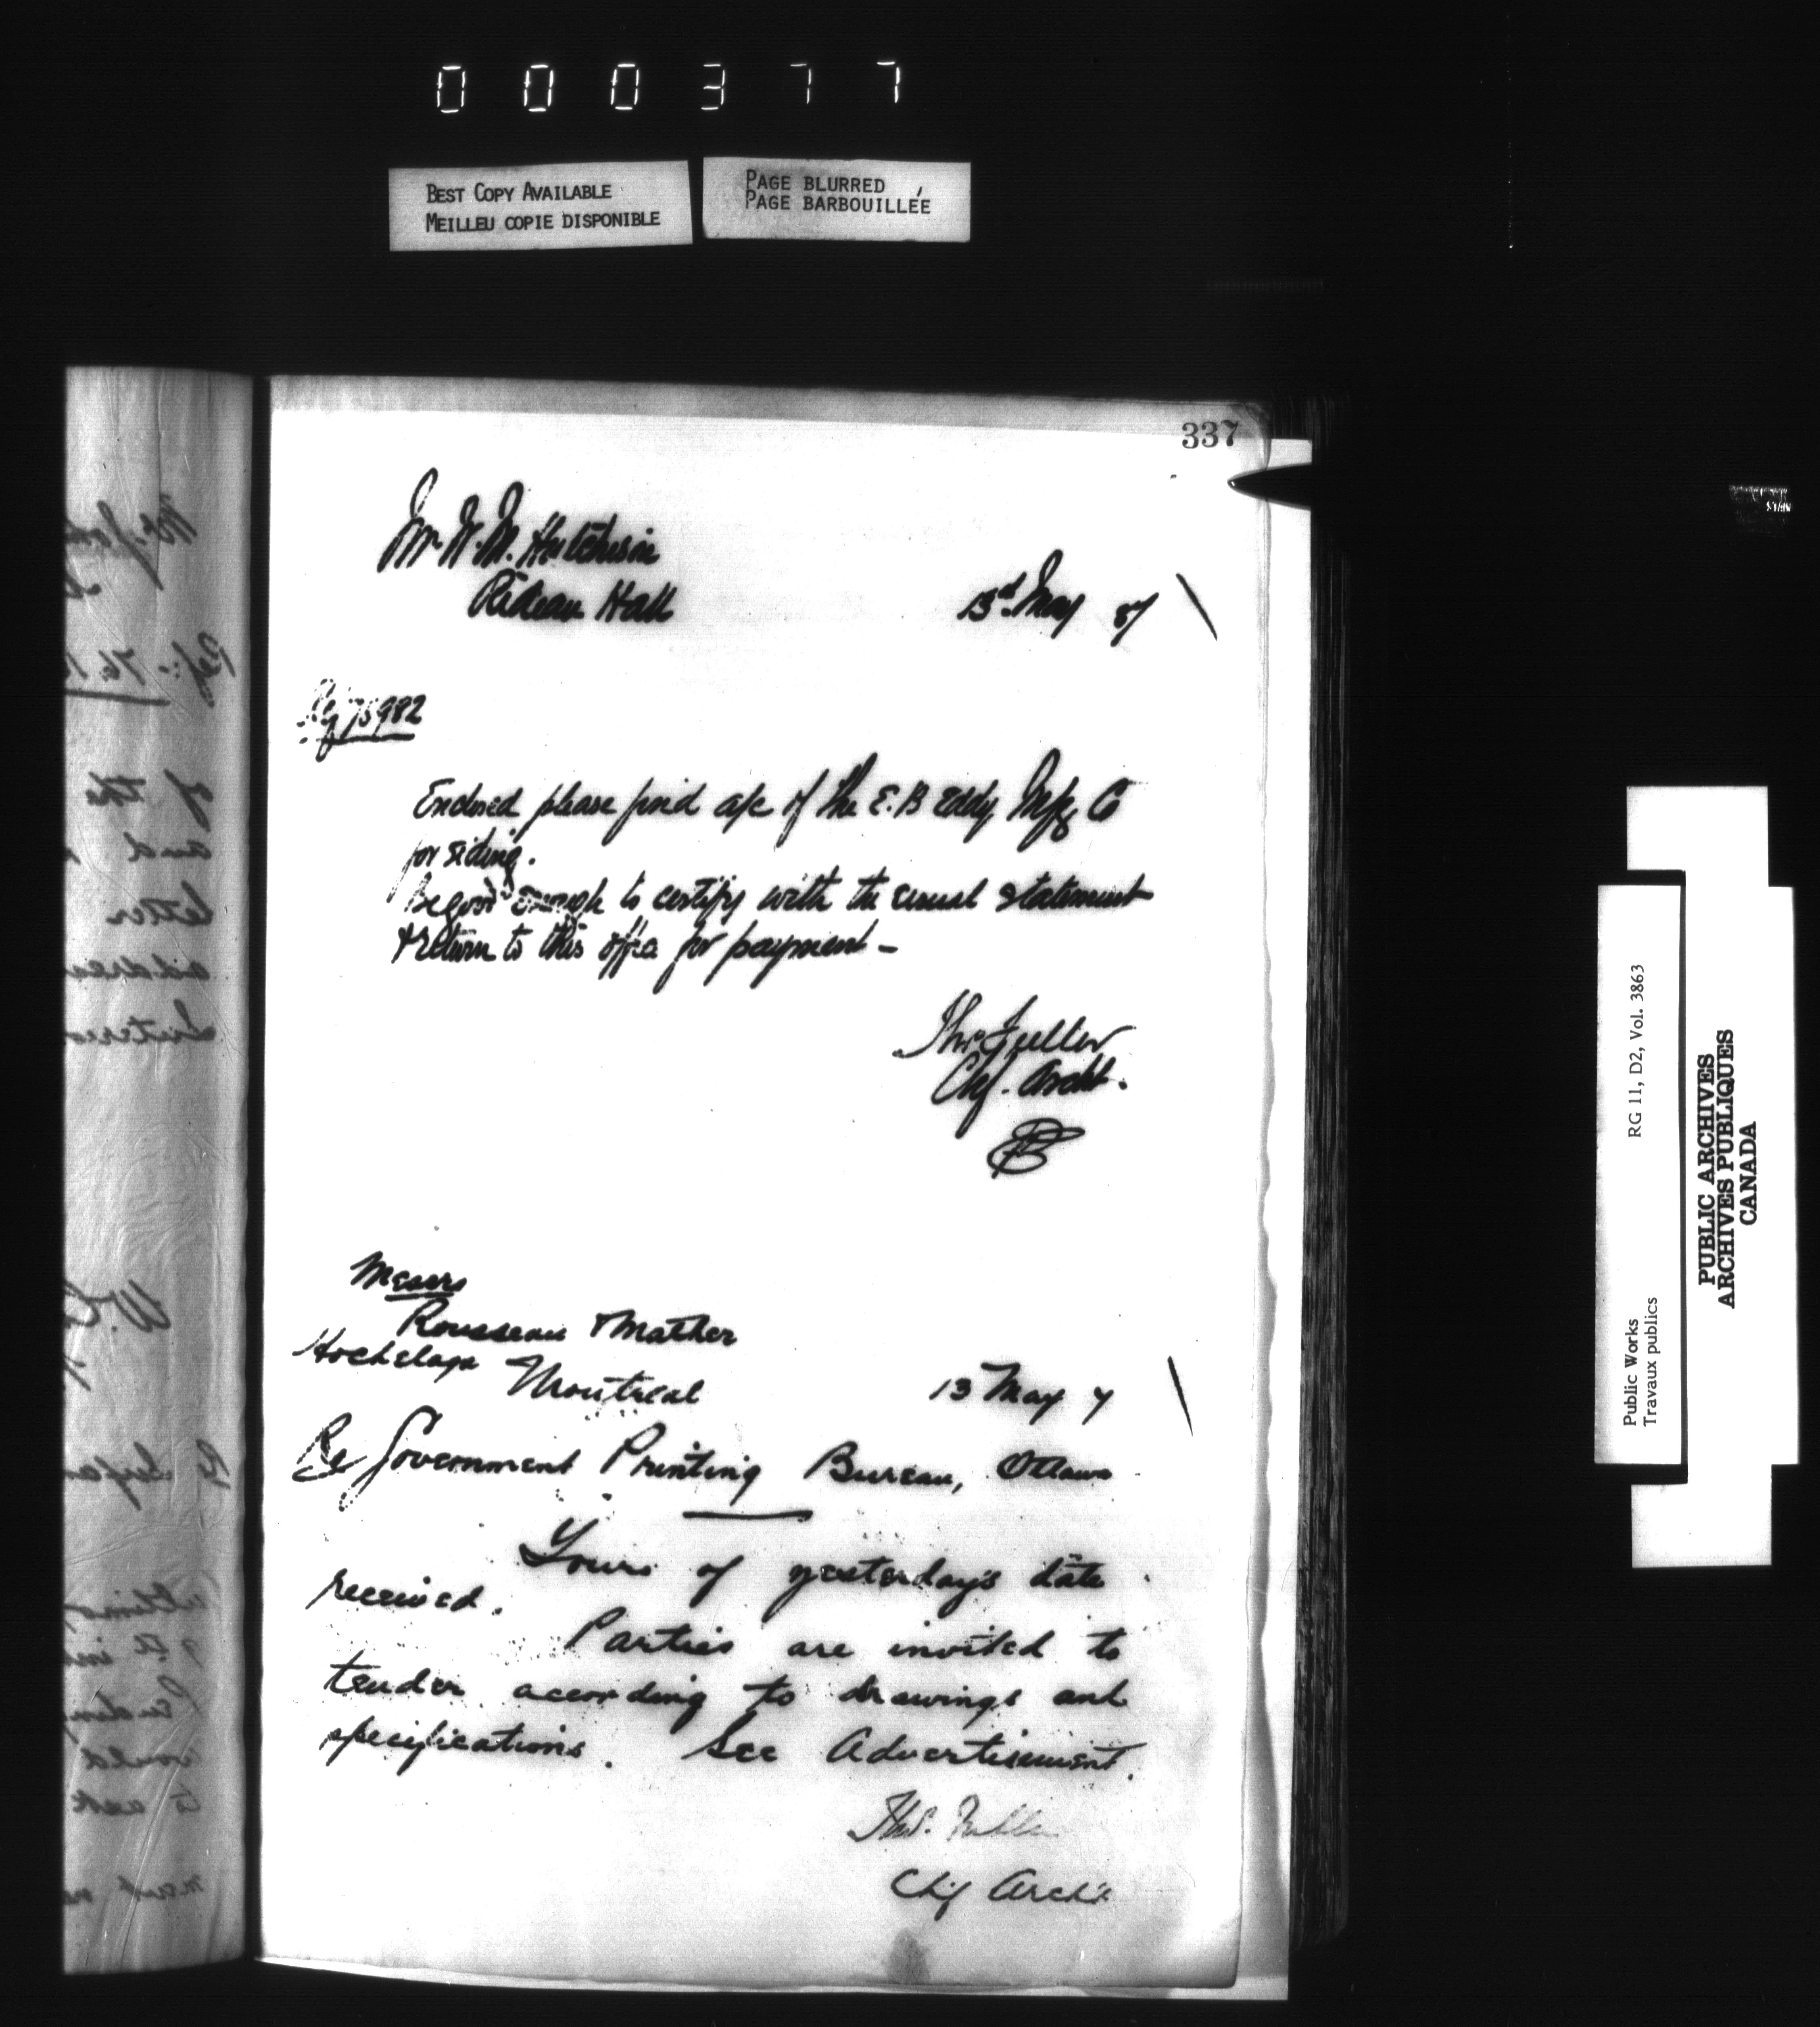 000377
BEST COPY AVAILABLE
MEILLEU COPIE DISPONIBLE
PAGE BLURRED
PAGE BARBOUILLÉE
337
Mr. W. M. Hutchison
Rideau Hall
13th May 87
Ref 75982
Enclosed please find a/c of The E. B Eddy Mfg Co
for siding.
Be good enough to certify with the usual statement
& return to this office for payment –
Thos Fuller
Chf. Archt.
Messrs
Rousseau & Mather
Hochelaga
Montreal
13 May 7
Re Government Printing Bureau, Ottawa
Yours of yesterday's date
received.
Parties are invited to
tender according to drawings and
specifications. See Advertisement.
Thos. Fuller
Chf Archt
of the
and
letter
would
to ask
RG 11, D2, Vol. 3863
Public Works
Travaux publics
PUBLIC ARCHIVES
ARCHIVES PUBLIQUES
CANADA